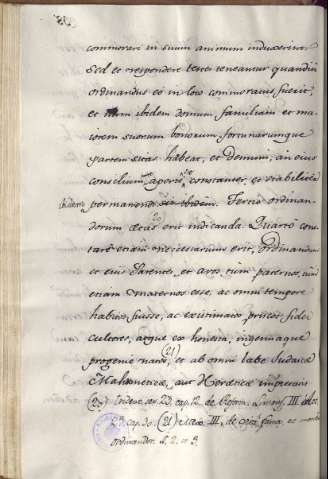 commorari in suum animum induxerint.
Sed et respondere testes teneantur quamdiu
ordinandus eo in loco commoratus fuerit,
et ibidem domum, familiam et ma-
iorem suorum bonorum, fortunarumque
partem sitas habeat, et Demum, an eius
consilium aperte, constanter, et stabiliter
permanendi sit ibidem. Tercio ordinan-
dorum ætas erit indicanda. Quarto cons-
tare etiam necessarium erit, Ordinandum
et eius Parentes, et avos, tum paternos, tum
etiam maternos esse, ac omni tempore
habitos fuisse, ac existimatos priscæ fidei
cultores, atque ex honesta, ingenuaque
progenie natos, (21) et ab omni labe Judaica
Mahometica, aut Heretica
(20) Trident. ses. 23. cap. 12. de Reform.
23. cap. 30. (21) III, de
ordinandor. L. 2. 3.